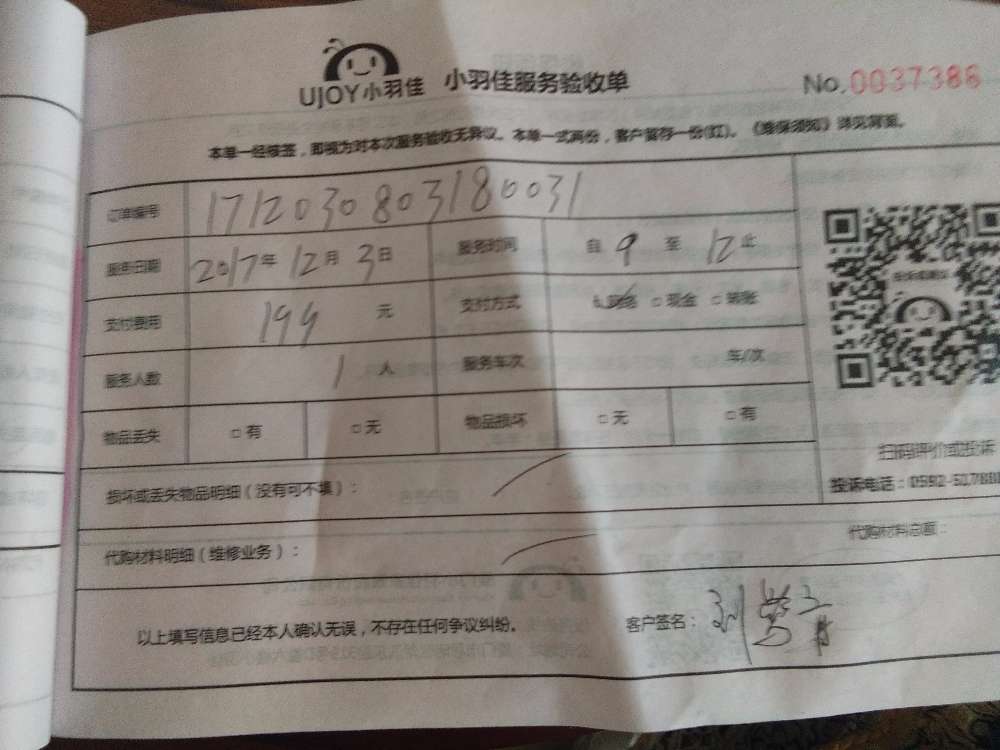 UJOY小羽佳 小羽佳服务验收单 No.0037386
本单一经核签，即视为对本次服务验收无异议。本单一式两份，客户留存一份(红)。《维保须知》详见背面。
订单编号 1712030803180031
服务日期 2017年12月3日 服务时间 自9至12止
支付费用 199元 支付方式 网络 □现金 □转账
服务人数 1人 服务车次 车/次
物品丢失 □有 □无 物品损坏 □无 □有
扫码评价或投诉
损坏或丢失物品明细（没有可不填）：
投诉电话：0592-51788
代购材料明细（维修业务）： 代购材料总额：
以上填写信息已经本人确认无误，不存在任何争议纠纷。 客户签名：刘